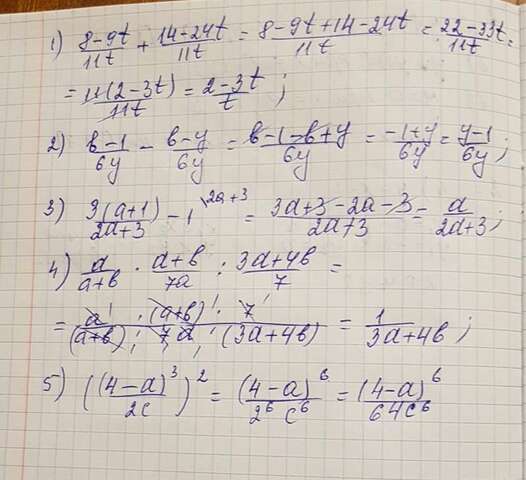 1) (8-9t)/(11t) + (14-24t)/(11t) = (8-9t+14-24t)/(11t) = (22-33t)/(11t) =
= (11(2-3t))/(11t) = (2-3t)/t ;
2) (b-1)/(6y) - (b-y)/(6y) = (b-1-b+y)/(6y) = (-1+y)/(6y) = (y-1)/(6y) ;
3) (3(a+1))/(2a+3) - 1 \ 2a+3 = (3a+3-2a-3)/(2a+3) = a/(2a+3) ;
4) a/(a+b) · (a+b)/(7a) : (3a+4b)/7 =
= (a¹ · (a+b)¹ · 7¹)/((a+b)₁ · 7₁ a₁ · (3a+4b)) = 1/(3a+4b) ;
5) (((4-a)³)/(2c))² = ((4-a)⁶)/(2⁶ c⁶) = ((4-a)⁶)/(64c⁶)